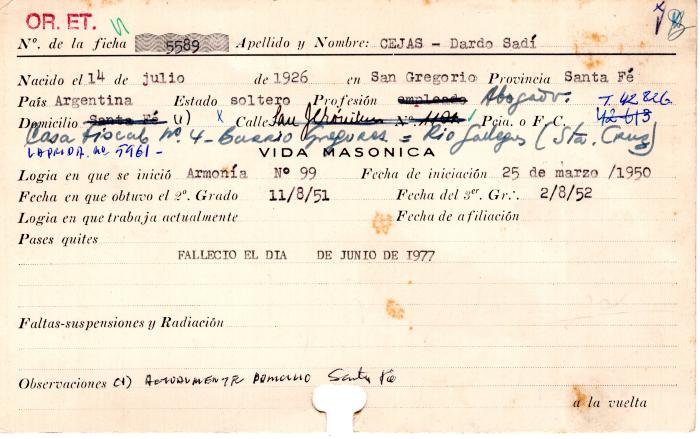 OR. ET.
Nº. de la ficha 5589 Apellido y Nombre: CEJAS - Dardo Sadí
Nacido el 14 de julio de 1926 en San Gregorio Provincia Santa Fé
País Argentina Estado soltero Profesión empleado Abogado. T. 42826
Domicilio Santa Fé (1) x Calle San Jerónimo Nº Pcia. o F. C. 42613
Casa Fiscal Nº. 4 - Barrio Gregores = Rio Gallegos (Sta. Cruz)
LAPRIDA No 5961 -
VIDA MASONICA
Logia en que se inició Armonía Nº 99 Fecha de iniciación 25 de marzo /1950
Fecha en que obtuvo el 2º. Grado 11/8/51 Fecha del 3er. Gr∴. 2/8/52
Logia en que trabaja actualmente Fecha de afiliación
Pases quites
FALLECIO EL DIA DE JUNIO DE 1977
Faltas-suspensiones y Radiación
Observaciones (1) ACTUALMENTE DOMICILIO Santa Fé
a la vuelta